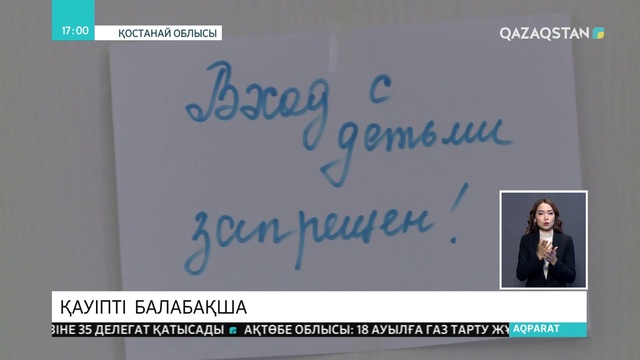 17:00
ҚОСТАНАЙ ОБЛЫСЫ
QAZAQSTAN
Вход с
детьми
запрещен!
ҚАУІПТІ БАЛАБАҚША
ЗІНЕ 35 ДЕЛЕГАТ ҚАТЫСАДЫ АҚТӨБЕ ОБЛЫСЫ: 18 АУЫЛҒА ГАЗ ТАРТУ ЖҰ
AQPARAT